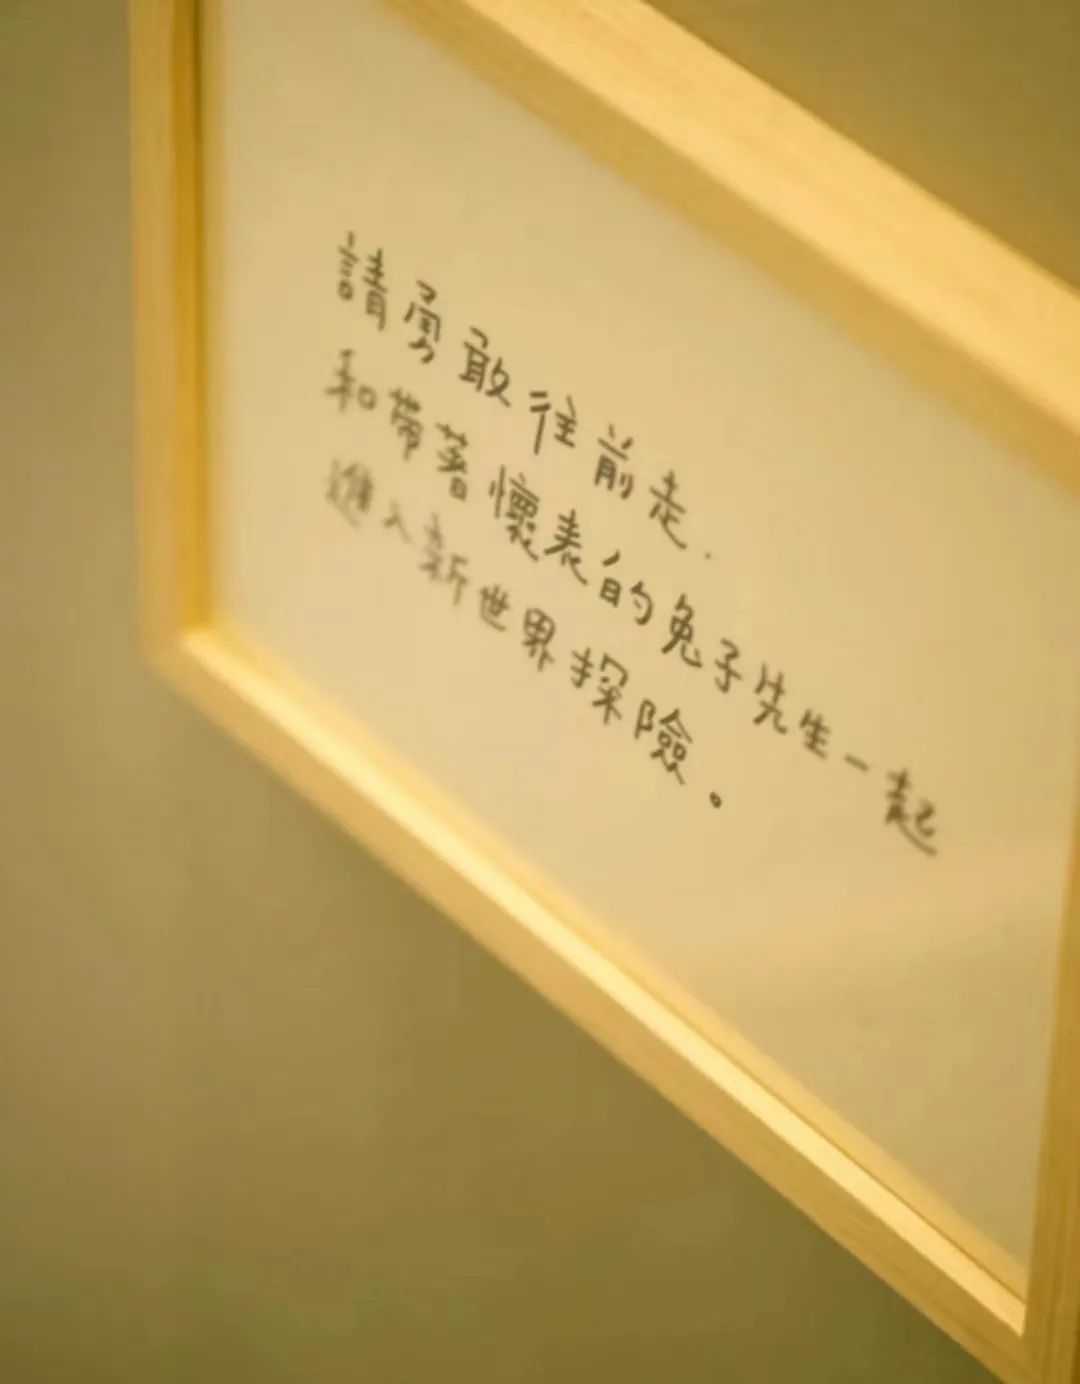 請勇敢往前走.
和帶著懷表的兔子先生一起
進入新世界探險。